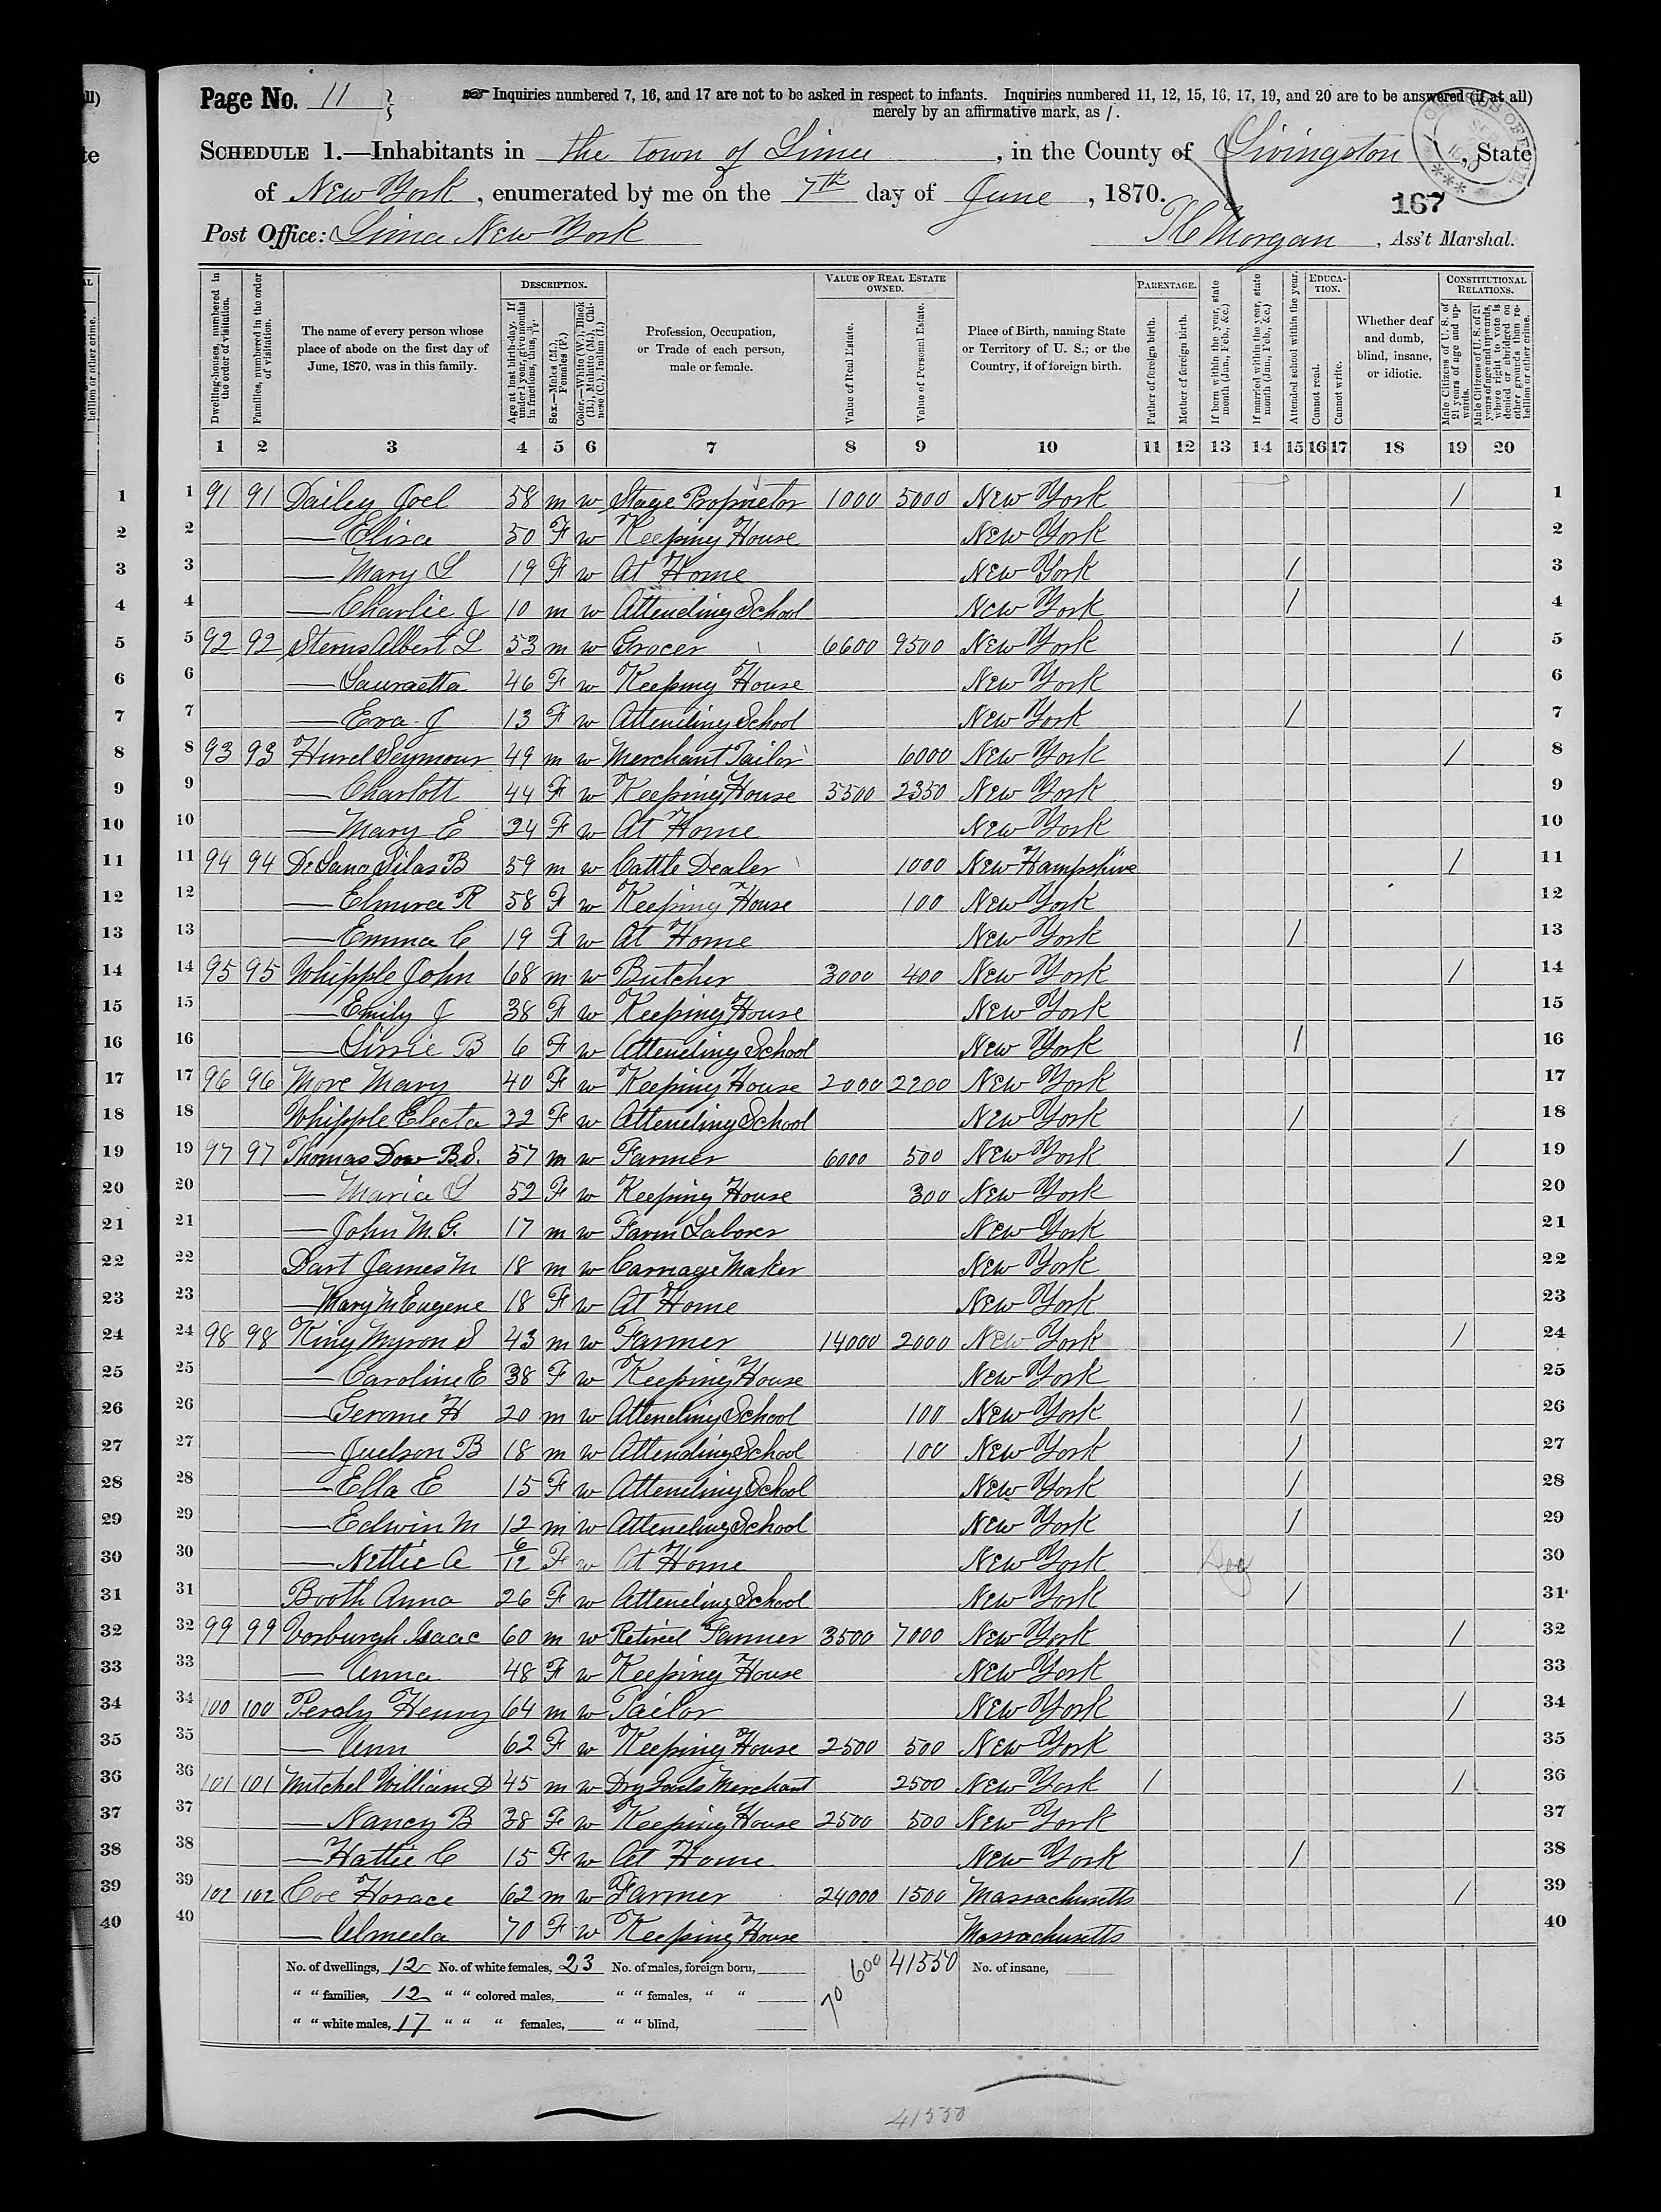 Page No. 11
Inquiries numbered 7, 16, and 17 are not to be asked in respect to infants. Inquiries numbered 11, 12, 15, 16, 17, 19, and 20 are to be answered (if at all)
merely by an affirmative mark, as /.
SCHEDULE 1.—Inhabitants in the town of Lima, in the County of Livingston, State
of New York, enumerated by me on the 7th day of June, 1870.
167
Post Office: Lima New York
Morgan, Ass't Marshal.
Dwelling-houses, numbered in the order of visitation.
Families, numbered in the order of visitation.
The name of every person whose place of abode on the first day of June, 1870, was in this family.
DESCRIPTION.
Age at last birth-day. If under 1 year, give months in fractions, thus, 3/12.
Sex.—Males (M.), Females (F.)
Color.—White (W.), Black (B.), Mulatto (M.), Chinese (C.), Indian (I.)
Profession, Occupation, or Trade of each person, male or female.
VALUE OF REAL ESTATE OWNED.
Value of Real Estate.
Value of Personal Estate.
Place of Birth, naming State or Territory of U. S.; or the Country, if of foreign birth.
PARENTAGE.
Father of foreign birth.
Mother of foreign birth.
If born within the year, state month (Jan., Feb., &c.)
If married within the year, state month (Jan., Feb., &c.)
Attended school within the year.
EDUCATION.
Cannot read.
Cannot write.
Whether deaf and dumb, blind, insane, or idiotic.
CONSTITUTIONAL RELATIONS.
Male Citizens of U. S. of 21 years of age and upwards.
Male Citizens of U. S. of 21 years of age and upwards, where right to vote is denied or abridged on other grounds than rebellion or other crime.
1 2 3 4 5 6 7 8 9 10 11 12 13 14 15 16 17 18 19 20
1 91 91 Dailey Joel 58 m w Stage Proprietor 1000 5000 New York / 1
2 — Eliza 50 F w Keeping House New York 2
3 — Mary L 19 F w At Home New York / 3
4 — Charlie J 10 m w Attending School New York / 4
5 92 92 Sterns Albert L 53 m w Grocer 6600 9500 New York / 5
6 — Lauraetta 46 F w Keeping House New York 6
7 — Eva J 13 F w Attending School New York / 7
8 93 93 Hurd Seymour 49 m w Merchant Tailor 6000 New York / 8
9 — Charlott 44 F w Keeping House 5500 2350 New York 9
10 — Mary E 24 F w At Home New York 10
11 94 94 DeLano Silas B 59 m w Cattle Dealer 1000 New Hampshire / 11
12 — Elmira R 58 F w Keeping House 100 New York 12
13 — Emma C 19 F w At Home New York / 13
14 95 95 Whipple John 68 m w Butcher 3000 400 New York / 14
15 — Emily J 38 F w Keeping House New York 15
16 — Lissie B 6 F w Attending School New York / 16
17 96 96 More Mary 40 F w Keeping House 2000 2200 New York 17
18 Whipple Electa 22 F w Attending School New York / 18
19 97 97 Thomas Dow B.S. 57 m w Farmer 6000 500 New York / 19
20 — Maria L 52 F w Keeping House 300 New York 20
21 — John M.G. 17 m w Farm Laborer New York 21
22 Dart James M 18 m w Carriage Maker New York 22
23 — Mary M Eugene 18 F w At Home New York 23
24 98 98 King Myron S 43 m w Farmer 14000 2000 New York / 24
25 — Caroline E 38 F w Keeping House New York 25
26 — Gerome H 20 m w Attending School 100 New York / 26
27 — Judson B 18 m w Attending School 100 New York / 27
28 — Ella E 15 F w Attending School New York / 28
29 — Edwin M 12 m w Attending School New York / 29
30 — Nettie A 6/12 F w At Home New York Dec 30
31 Booth Anna 26 F w Attending School New York / 31
32 99 99 Vosburgh Isaac 60 m w Retired Farmer 3500 7000 New York / 32
33 — Anna 48 F w Keeping House New York 33
34 100 100 Perdy Henry 64 m w Tailor New York / 34
35 — Ann 62 F w Keeping House 2500 500 New York 35
36 101 101 Mitchel William D 45 m w Dry Goods Merchant 2500 New York / / 36
37 — Nancy B 38 F w Keeping House 2500 500 New York 37
38 — Hattie C 15 F w At Home New York / 38
39 102 102 Coe Horace 62 m w Farmer 24000 1500 Massachusetts / 39
40 — Almeda 70 F w Keeping House Massachusetts 40
No. of dwellings, 12 No. of white females, 23 No. of males, foreign born, 70 600 41550 No. of insane,
" " families, 12 " " colored males, " " females, " "
" " white males, 17 " " " females, " " blind,
41550